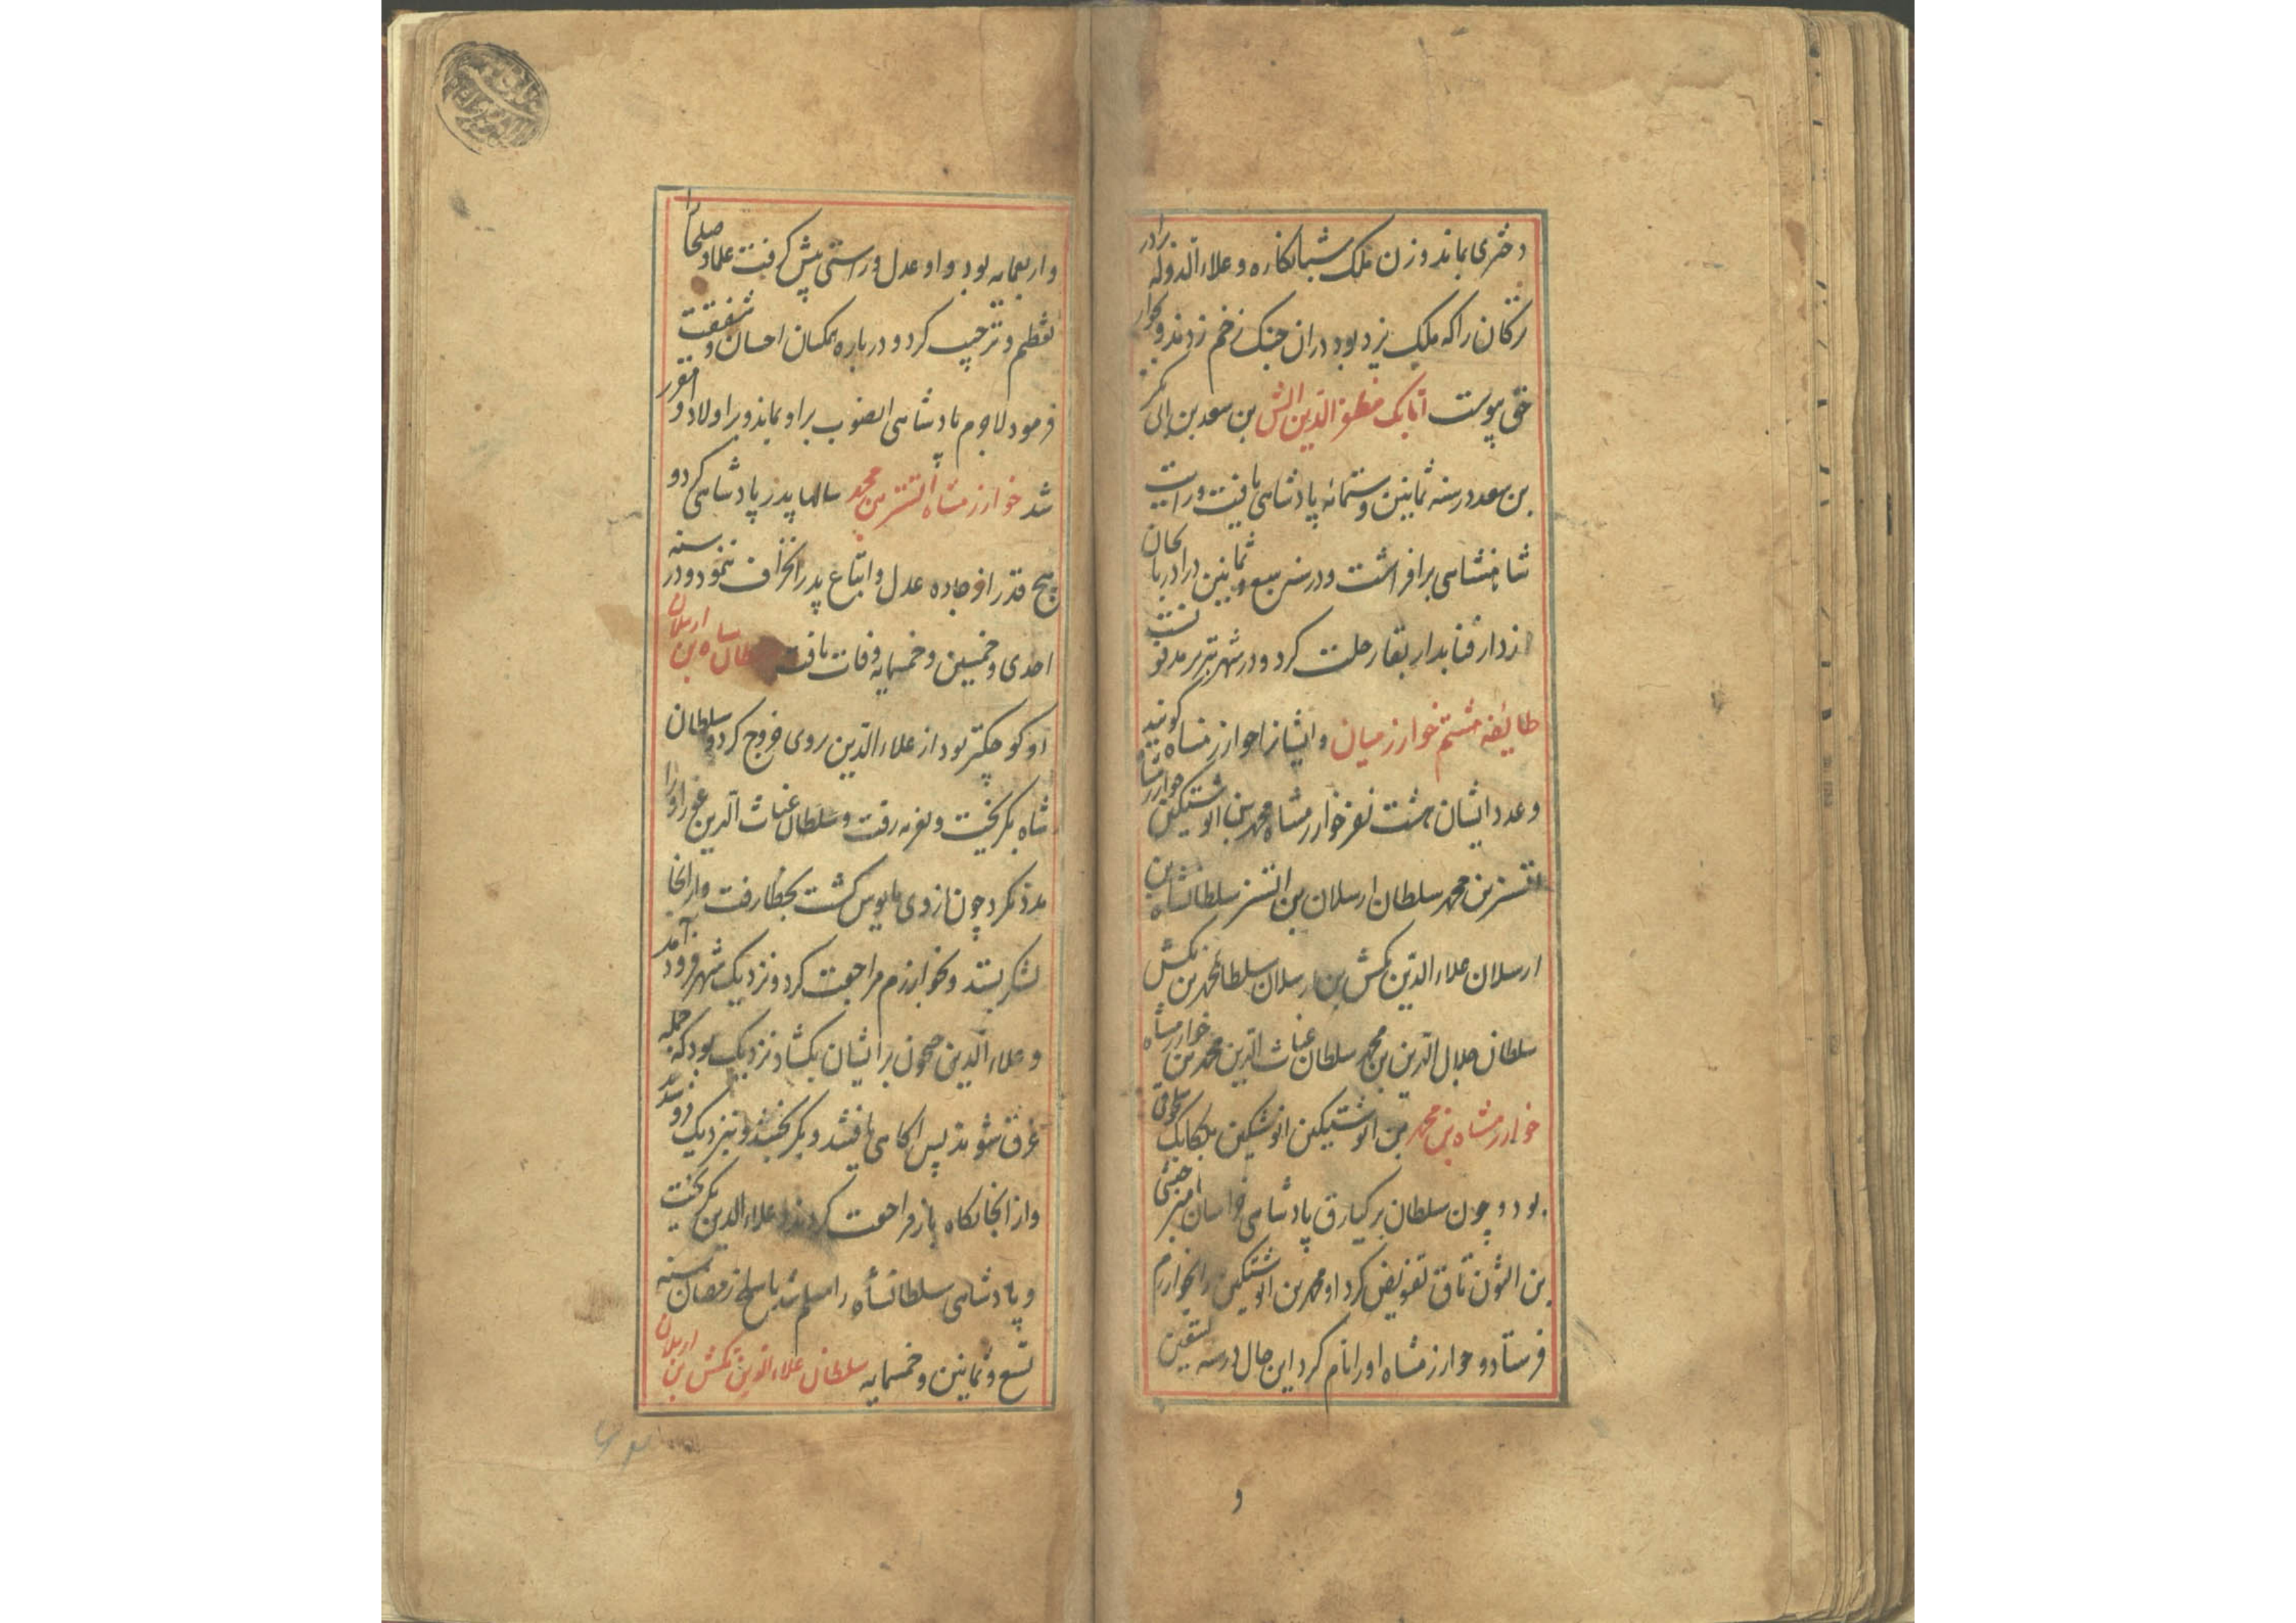 دختری بماند و زن ملک شبانکاره و علاء الدوله را در
ترکان را که ملک یزد بود در ان جنک زخم زدند و بجوار
حق پیوست اتابک مظفر الدین الش بن سعد بن ابی بکر
بن سعد در سنه ثمانین و ستمائه پادشاهی یافت و رایت
شاهنشاهی برافراشت و در سنه سبع و ثمانین در ادربایجان
از دار فنا بدار بقا رحلت کرد و در شهر تبریز مدفونست
طایفه هشتم خوارزمیان و ایشانرا خوارزمشاه کویند
و عدد ایشان هشت نفر خوارزمشاه محمد بن انوشتیکین خوارزمشاه
اتسز بن محمد سلطان ارسلان بن اتسز سلطانشاه بن
ارسلان علاء الدین تکش بن ارسلان سلطان محمد بن تکش
سلطان جلال الدین بن محمد سلطان غیاث الدین محمد بن خوارزمشاه
خوارزمشاه بن محمد بن انوشتیکین انوشتکین بلکابک
بود و چون سلطان برکیارق پادشاهی خراسان بامیر حبشی
بن التون تاق تفویض کرد او محمد بن انوشتکین را بخوارزم
فرستاد و خوارزمشاه او را نام کرد این حال در سنه تسعین
و
و اربعمایه بود و او عدل و راستی پیش کرفت علما و صلحا را
تعظیم و ترحیب کرد و درباره همکنان احسان و شفقت
فرمود لاجرم پادشاهی الصوب بر او بماند و بر اولاد او مقرر
شد خوارزمشاه اتسز بن محمد سالها پدر پادشاهی کرد و
هیچ قدر از جاده عدل و اتباع پدر انحراف ننمود و در سنه
احدی و خمسین و خمسمایه وفات یافت سلطان شاه بن ارسلان
او کوچکتر بود از علاء الدین بروی خروج کرد و سلطان
شاه بکریخت و بغزنه رفت و سلطان غیاث الدین غور او را
مدد نکرد چون از وی مایوس کشت بخطا رفت و از انجا
لشکر بستد و بخوارزم مراجعت کرد و نزدیک شهر فرود آمد
و علاء الدین جیحون بر ایشان بکشاد نزدیک بود که جمله
غرق شوند پس اکاهی یافتند و بکریختند و بنزدیک در شدند
و از انجایکاه باز مراجعت کردند و علاء الدین بکریخت
و پادشاهی سلطانشاه را مسلم شد تا سلخ رمضان سنه
تسع و ثمانین و خمسمایه سلطان علاء الدین تکش بن ارسلان